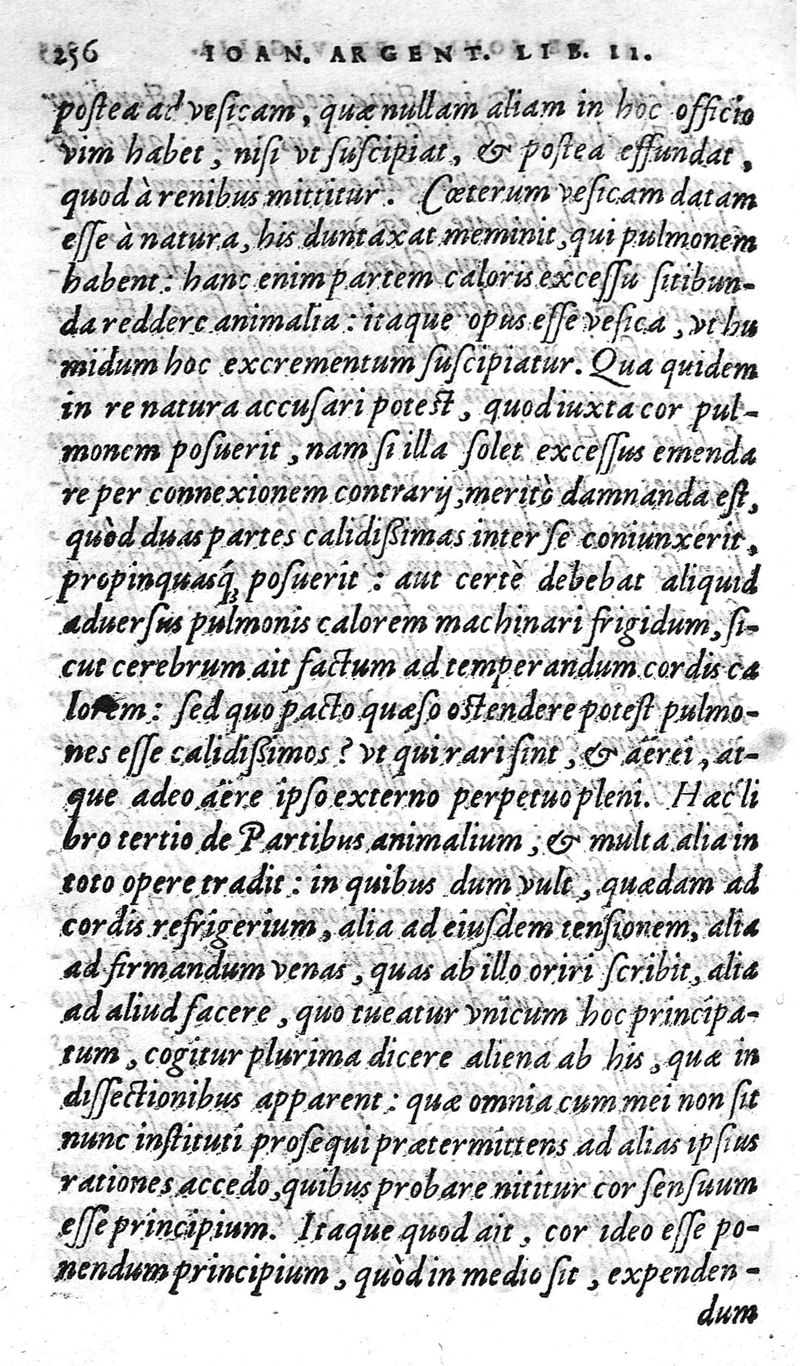 256 IOAN. ARGENT. LIB. II.
postea ad vesicam, quæ nullam aliam in hoc officio
vim habet, nisi vt suscipiat, & postea effundat,
quod à renibus mittitur. Cœterum vesicam datam
esse à natura, his duntaxat meminit, qui pulmonem
habent: hanc enim partem caloris excessu sitibun-
da reddere animalia: itaque opus esse vesica, vt hu
midum hoc excrementum suscipiatur. Qua quidem
in re natura accusari potest, quod iuxta cor pul-
monem posuerit, nam si illa solet excessus emenda
re per connexionem contrarij, meritò damnanda est,
quòd duas partes calidißimas inter se coniunxerit,
propinquasq́; posuerit: aut certè debebat aliquid
aduersus pulmonis calorem machinari frigidum, si-
cut cerebrum ait factum ad temperandum cordis ca
lorem: sed quo pacto quæso ostendere potest pulmo-
nes esse calidißimos? vt qui rari sint, & aërei, at-
que adeo aëre ipso externo perpetuo pleni. Hæc li
bro tertio de Partibus animalium, & multa alia in
toto opere tradit: in quibus dum vult, quædam ad
cordis refrigerium, alia ad eiusdem tensionem, alia
ad firmandum venas, quas ab illo oriri scribit, alia
ad aliud facere, quo tueatur vnicum hoc principa-
tum, cogitur plurima dicere aliena ab his, quæ in
dissectionibus apparent: quæ omnia cum mei non sit
nunc instituti prosequi prætermittens ad alias ipsius
rationes accedo, quibus probare nititur cor sensuum
esse principium. Itaque quod ait, cor ideo esse po-
nendum principium, quòd in medio sit, expenden-
dum